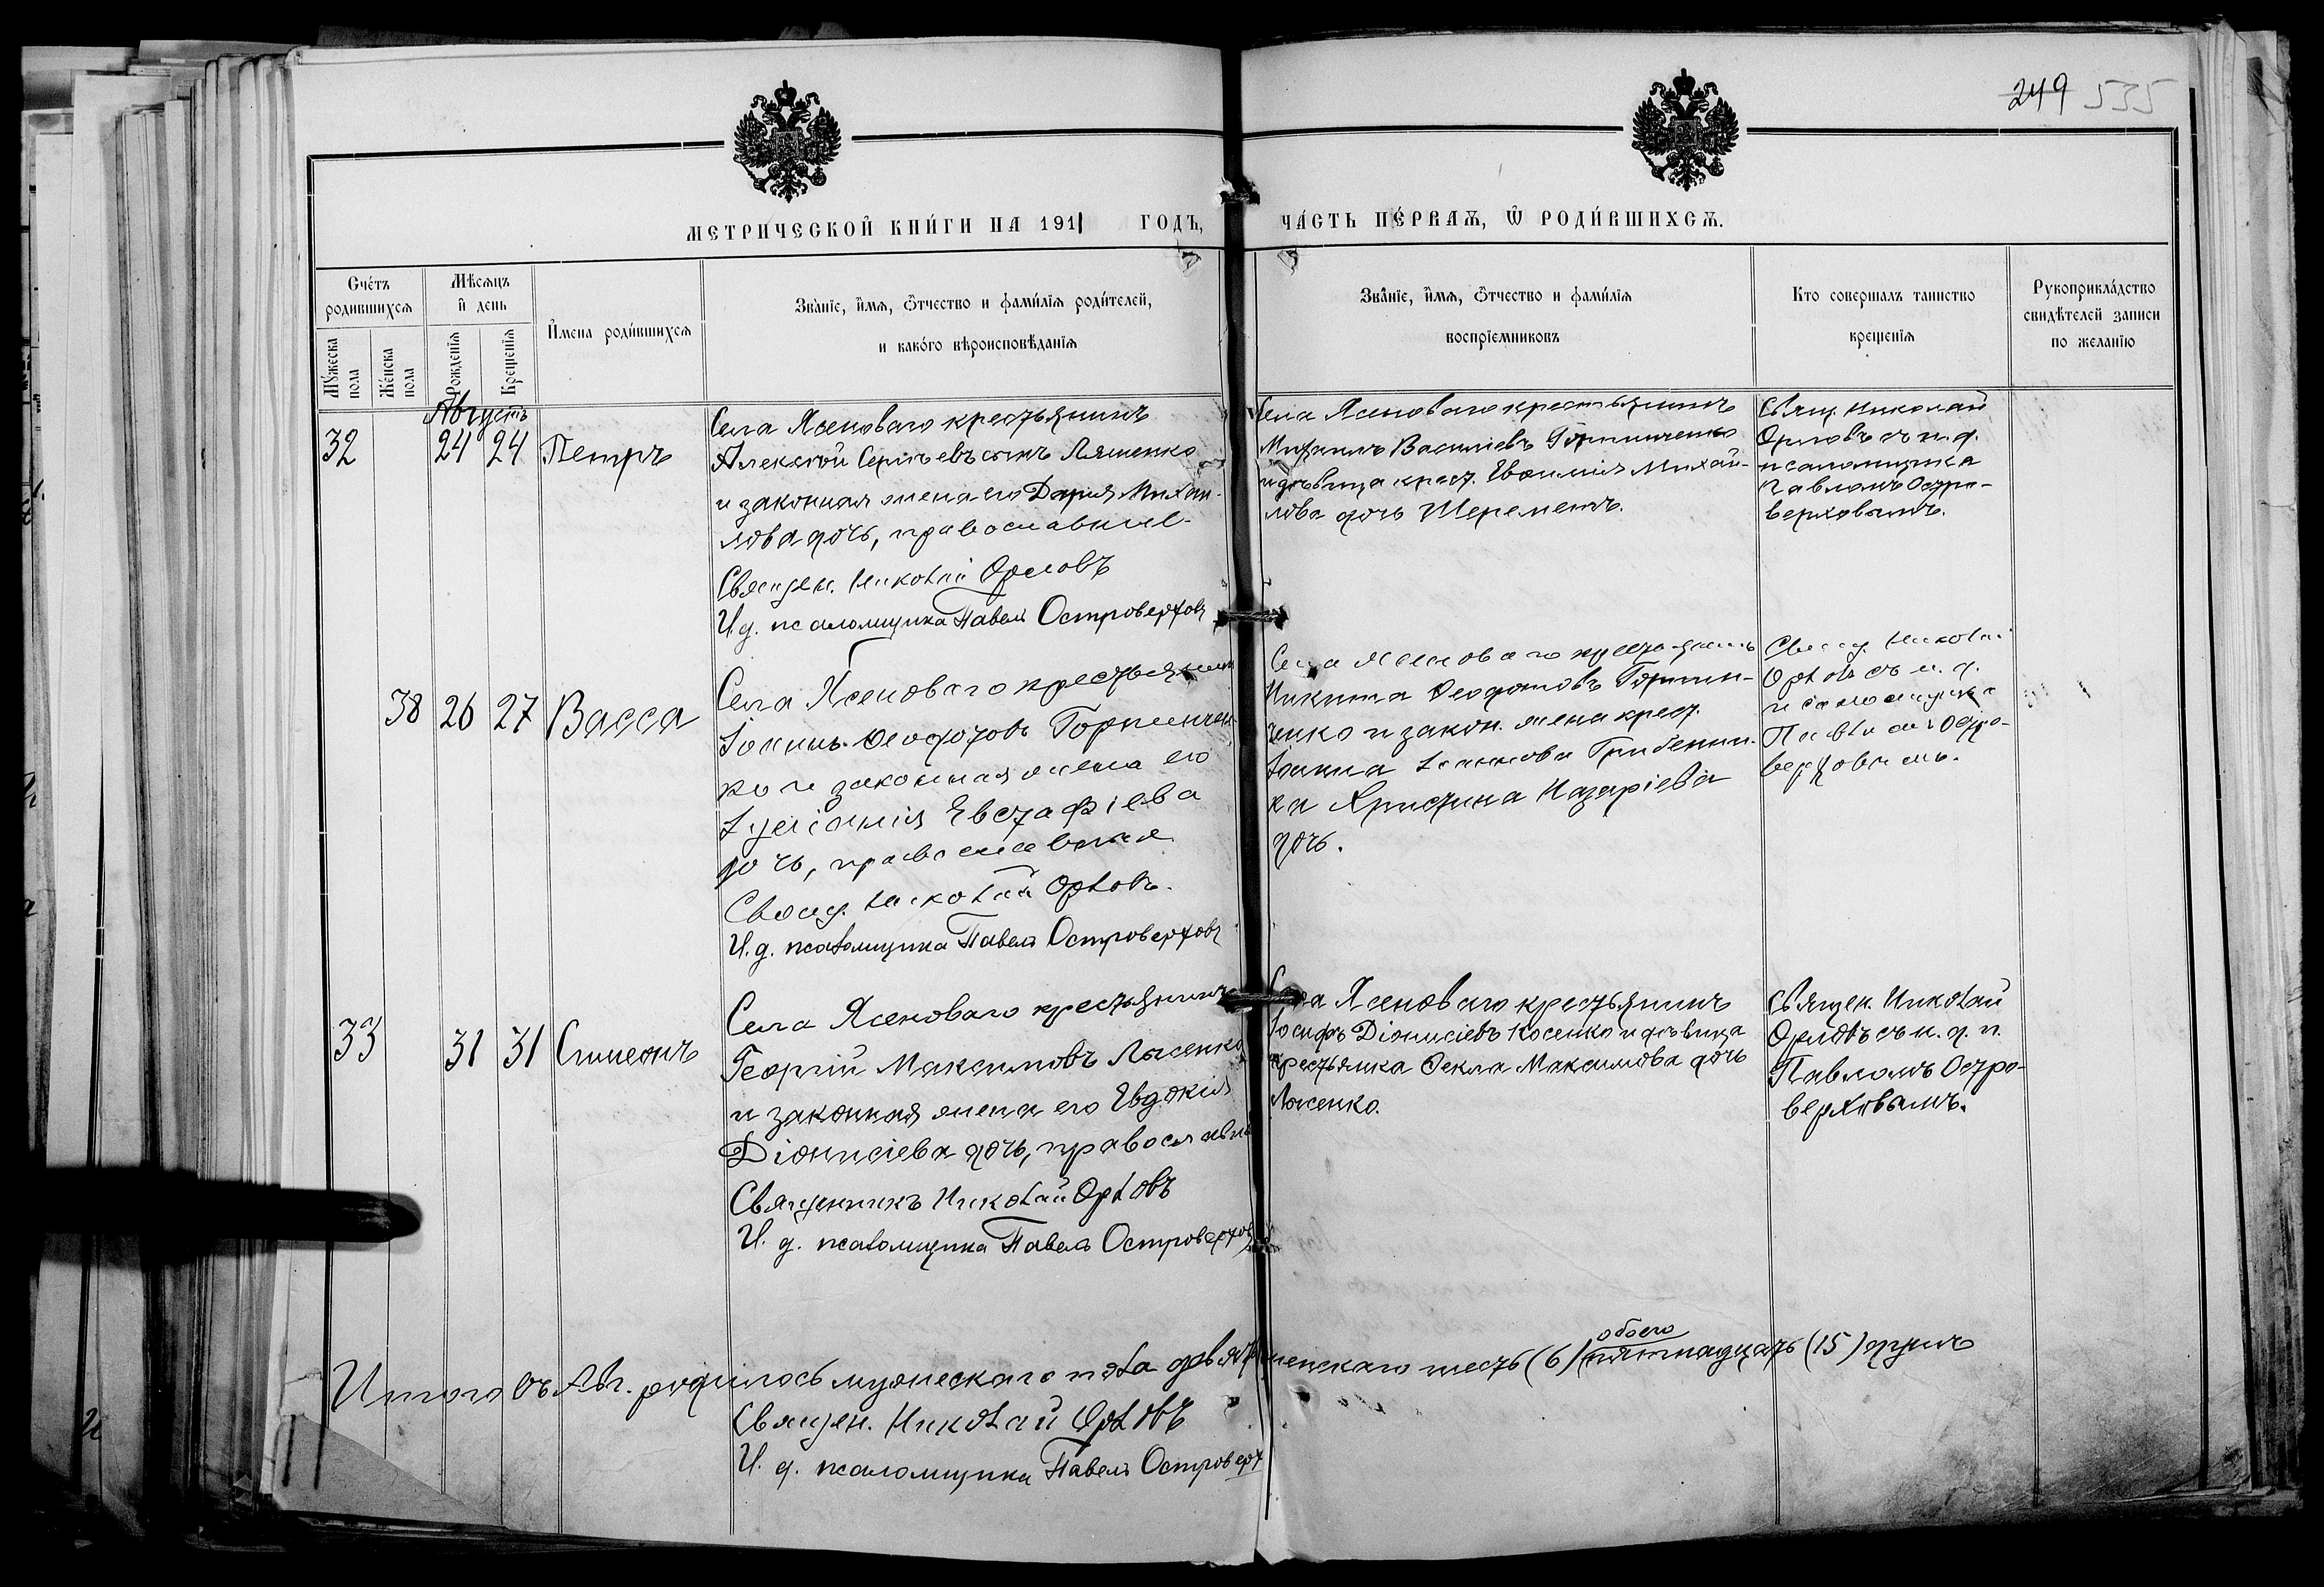 249 535
МЕТРИЧЕСКОЙ КНИГИ НА 1911 ГОДЪ,
ЧАСТЬ ПЕРВАЯ, Ѿ РОДИВШИХСЯ.
Счетъ родившихся
Мужеска пола
Женска пола
Мѣсяцъ и день
Рожденія
Крещенія
Имена родившихся
Званіе, имя, ѻтчество и фамилія родителей,
и какого вѣроисповѣданія
Званіе, имя, ѻтчество и фамилія
воспріемниковъ
Кто совершалъ таинство
крещенія
Рукоприкладство
свидѣтелей записи
по желанію
Августъ
32 24 24 Петръ
Села Ясеноваго крестьянинъ
Алексѣй Сергѣевъ сынъ Ляшенко
и законная жена его Дарія Михаи-
лова дочь, православные
Священ. Николай Орловъ
И. д. псаломщика Павелъ Островерховъ
Села Ясеноваго крестьянинъ
Михаилъ Василіевъ Горпинченко
и дѣвица крест. Евѳимія Михаи-
лова дочь Шереметъ.
Свящ. Николай
Орловъ съ и. д.
псаломщика
Павломъ Остро-
верховымъ.
38 26 27 Васса
Села Ясеноваго крестьянинъ
Іоаннъ Ѳеодотовъ Горпинчен-
ко и законная жена его
Евстафіева
дочь, православные
Свящ. Николай Орловъ.
И. д. псаломщика Павелъ Островерховъ
Села Ясеноваго крестьянинъ
Никита Ѳеодотовъ Горпин-
ченко и закон. жена крест.
Іоанна Іоаннова Гребенни-
ка Христина Назаріева
дочь.
Свящ. Николай
Орловъ съ и. д.
псаломщика
Павломъ Остро-
верховымъ.
33 31 31 Симеонъ
Села Ясеноваго крестьянинъ
Георгій Максимовъ Лысенко
и законная жена его Евдокія
Діонисіева дочь, православные
Священникъ Николай Орловъ
И. д. псаломщика Павелъ Островерховъ
Села Ясеноваго крестьянинъ
Іосифъ Діонисіевъ Косенко и дѣвица
крестьянка Ѳекла Максимова дочь
Лысенко.
Священ. Николай
Орловъ съ и. д. п.
Павломъ Остро-
верховымъ.
Итого въ Авг. родилось мужескаго пола девять женскаго шесть (6) обоего пятнадцать (15) душъ
Священ. Николай Орловъ
И. д. псаломщика Павелъ Островерх